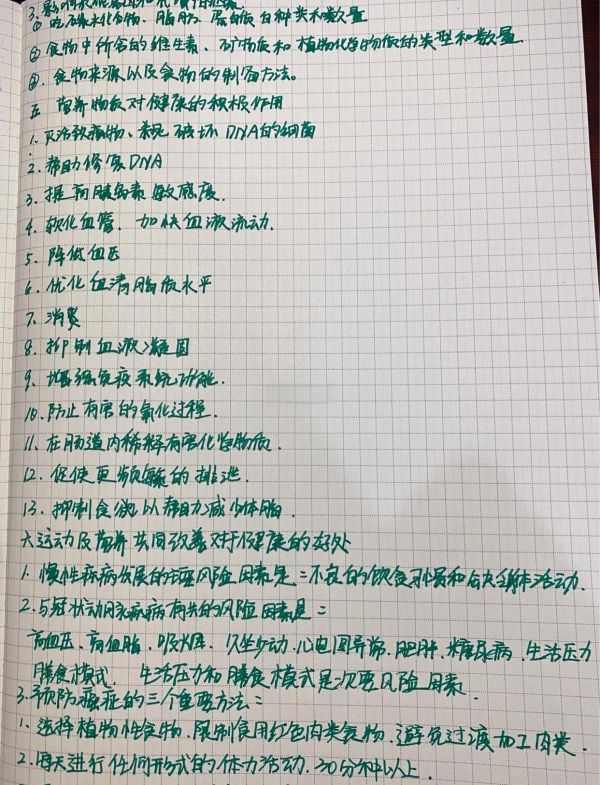 ① 吃碳水化合物、脂肪、蛋白质各种类和数量
② 食物中所含的维生素、矿物质和植物化学物质的类型和数量
③. 食物来源以及食物的制备方法。
五 营养物质对健康的积极作用
1. 灭活致癌物、杀死破坏DNA的细菌
2. 帮助修复DNA
3. 提高胰岛素敏感度.
4. 软化血管. 加快血液流动.
5. 降低血压
6. 优化血清脂质水平
7. 消炎
8. 抑制血液凝固
9. 增强免疫系统功能.
10. 防止有害的氧化过程.
11. 在肠道内稀释有害化学物质.
12. 促使更频繁的排泄.
13. 抑制食欲以帮助减少体脂.
六 运动及营养共同改善对于健康的好处
1. 慢性疾病发展的主要风险因素是:不良的饮食习惯和缺乏身体活动.
2. 与冠状动脉疾病有关的风险因素是:
高血压、高血脂、吸烟、久坐少动、心电图异常、肥胖、糖尿病、生活压力
膳食模式. 生活压力和膳食模式是次要风险因素.
3. 预防癌症的三个重要方法:
1. 选择植物性食物、限制食用红色肉类食物、避免过度加工肉类.
2. 每天进行任何形式的体力活动、30分钟以上.